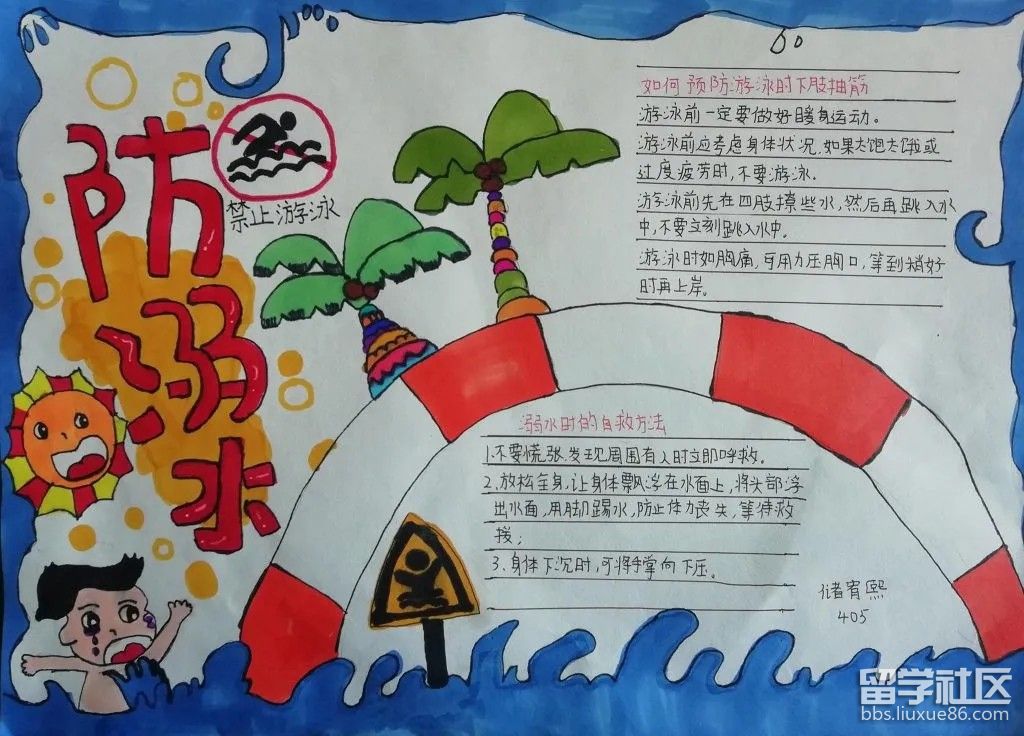 防溺水
禁止游泳
如何预防游泳时下肢抽筋
游泳前一定要做好暖身运动。
游泳前应考虑身体状况,如果太饱太饿或
过度疲劳时,不要游泳。
游泳前先在四肢撩些水,然后再跳入水
中,不要立刻跳入水中。
游泳时如胸痛,可用力压胸口,等到稍好
时再上岸。
溺水时的自救方法
1.不要慌张,发现周围有人时立即呼救。
2.放松全身,让身体飘浮在水面上,将头部浮
出水面,用脚踢水,防止体力丧失,等待救
援;
3.身体下沉时,可将手掌向下压。
储宥熙
405
留学社区
bbs.liuxue86.com